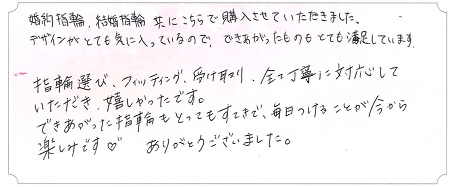 婚約指輪、結婚指輪 共にこちらで購入させていただきました。
デザインがとても気に入っているので、できあがったものもとても満足しています。
指輪選び、フィッティング、受け取り、全て丁寧に対応して
いただき、嬉しかったです。
できあがった指輪もとってもすてきで、毎日つけることが今から
楽しみです♡ ありがとうございました。